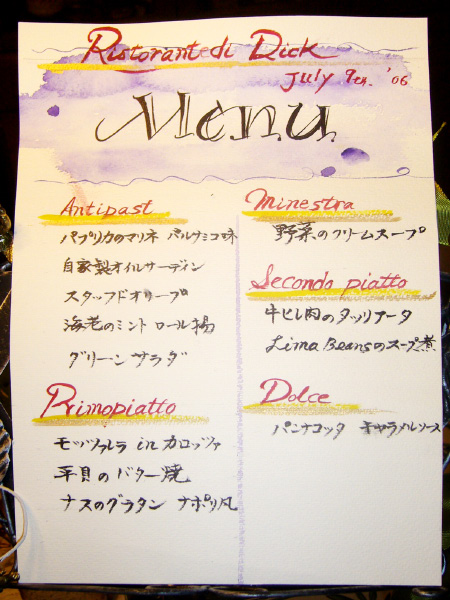 Ristorante di Dick
July 9th. '06
Menu
Antipast
パプリカのマリネ バルサミコ味
自家製オイルサーディン
スタッフドオリーブ
海老のミント ロール揚
グリーン サラダ
Primopiatto
モッツァレラ in カロッツァ
平貝のバター焼
ナスのグラタン ナポリ風
Minestra
野菜のクリームスープ
Secondo piatto
牛ヒレ肉のタッリアータ
Lima Beansのスープ煮
Dolce
パンナコッタ キャラメルソース